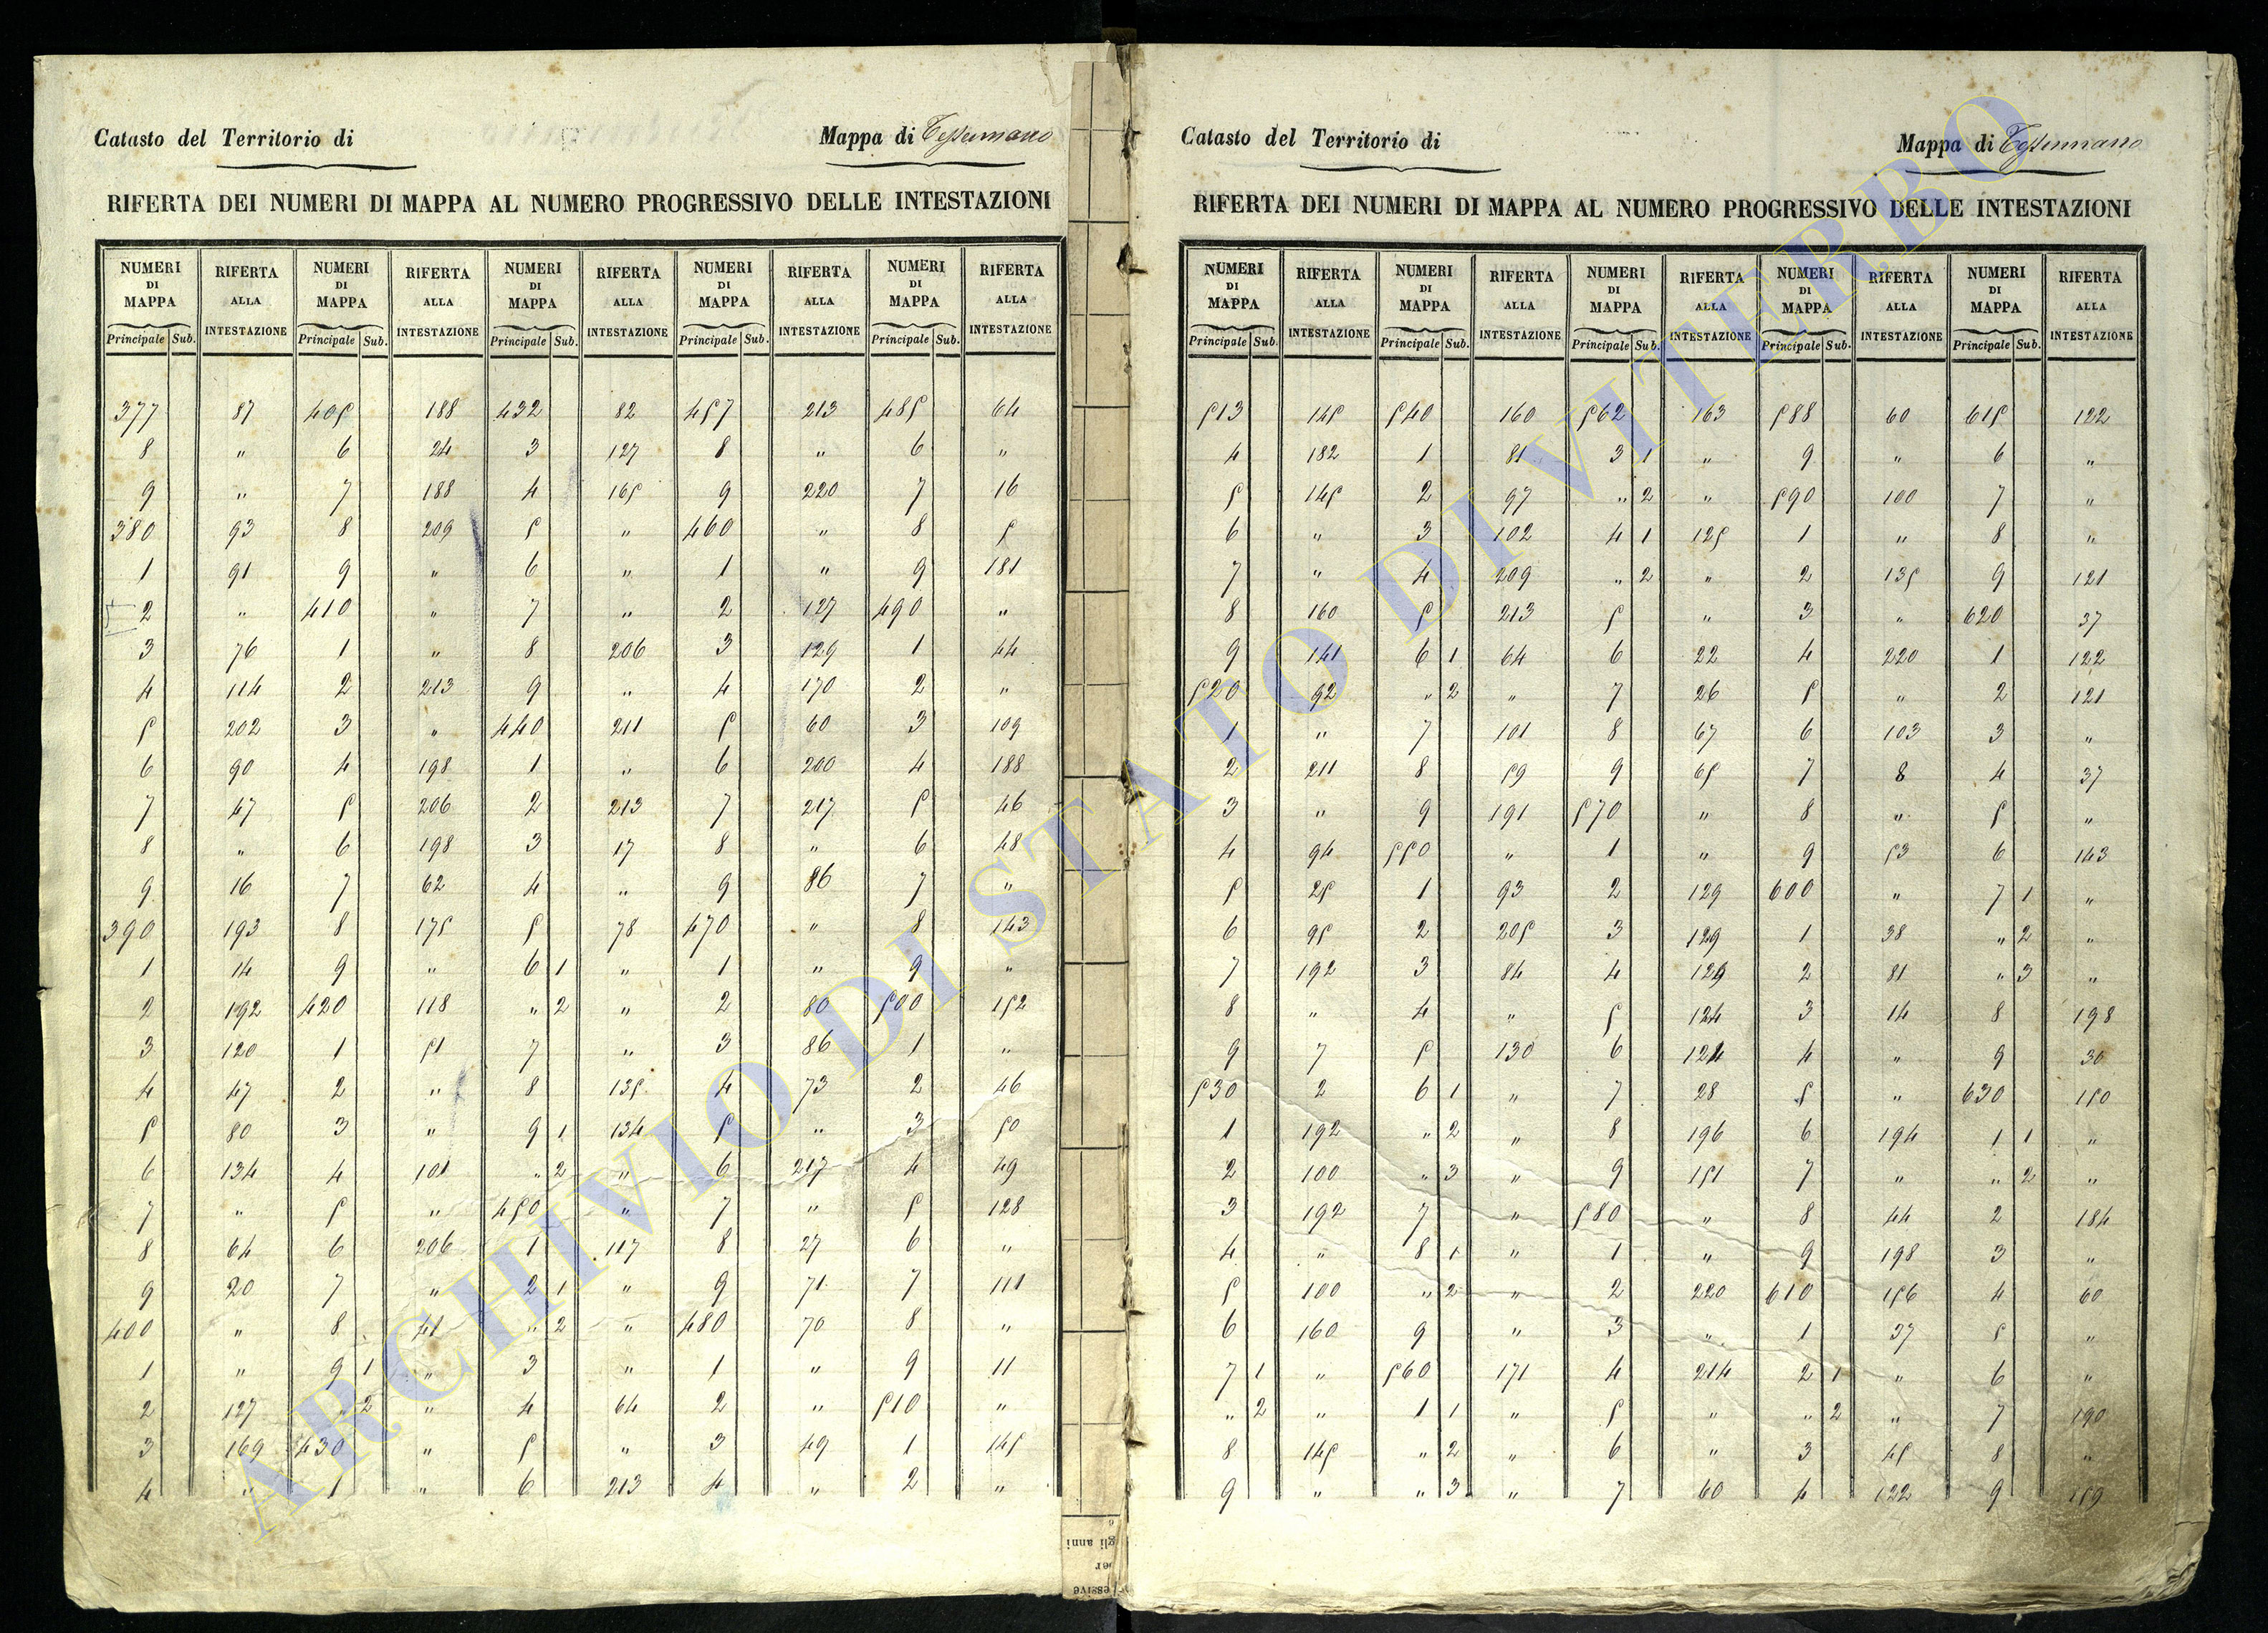 Catasto del Territorio di Mappa di Tessennano
RIFERTA DEI NUMERI DI MAPPA AL NUMERO PROGRESSIVO DELLE INTESTAZIONI
NUMERI DI MAPPA RIFERTA ALLA INTESTAZIONE NUMERI DI MAPPA RIFERTA ALLA INTESTAZIONE NUMERI DI MAPPA RIFERTA ALLA INTESTAZIONE NUMERI DI MAPPA RIFERTA ALLA INTESTAZIONE NUMERI DI MAPPA RIFERTA ALLA INTESTAZIONE
Principale Sub. Principale Sub. Principale Sub. Principale Sub. Principale Sub.
377 87 405 188 432 82 457 213 485 64
8 " 6 24 3 127 8 " 6 "
9 " 7 188 4 165 9 220 7 16
380 93 8 209 5 " 460 " 8 5
1 91 9 " 6 " 1 " 9 181
2 " 410 " 7 " 2 127 490 "
3 76 1 " 8 206 3 129 1 44
4 114 2 213 9 " 4 170 2 "
5 202 3 " 440 211 5 60 3 109
6 90 4 198 1 " 6 200 4 188
7 47 5 206 2 213 7 217 5 46
8 " 6 198 3 17 8 " 6 48
9 16 7 62 4 " 9 86 7 "
390 193 8 175 5 78 470 " 8 143
1 14 9 " 6 1 " 1 " 9 "
2 192 420 118 " 2 " 2 80 500 152
3 120 1 51 7 " 3 86 1 "
4 47 2 " 8 135 4 73 2 46
5 80 3 " 9 1 134 5 " 3 50
6 134 4 101 " 2 " 6 217 4 49
7 " 5 " 450 " 7 " 5 128
8 64 6 206 1 117 8 27 6 "
9 20 7 " 2 1 " 9 71 7 111
400 " 8 41 " 2 " 480 70 8 "
1 " 9 1 " 3 " 1 " 9 11
2 127 " 2 " 4 64 2 " 510 "
3 169 430 " 5 " 3 49 1 145
4 " 1 " 6 213 4 " 2 "
gli anni
essive
Catasto del Territorio di Mappa di Tessennano
RIFERTA DEI NUMERI DI MAPPA AL NUMERO PROGRESSIVO DELLE INTESTAZIONI
NUMERI DI MAPPA RIFERTA ALLA INTESTAZIONE NUMERI DI MAPPA RIFERTA ALLA INTESTAZIONE NUMERI DI MAPPA RIFERTA ALLA INTESTAZIONE NUMERI DI MAPPA RIFERTA ALLA INTESTAZIONE NUMERI DI MAPPA RIFERTA ALLA INTESTAZIONE
Principale Sub. Principale Sub. Principale Sub. Principale Sub. Principale Sub.
513 145 540 160 562 163 588 60 615 122
4 182 1 81 3 1 " 9 " 6 "
5 145 2 97 " 2 " 590 100 7 "
6 " 3 102 4 1 125 1 " 8 "
7 " 4 209 " 2 " 2 135 9 121
8 160 5 213 5 " 3 " 620 37
9 141 6 1 64 6 22 4 220 1 122
520 92 " 2 " 7 26 5 " 2 121
1 " 7 101 8 67 6 103 3 "
2 211 8 59 9 65 7 8 4 37
3 " 9 191 570 " 8 " 5 "
4 94 550 " 1 " 9 53 6 143
5 25 1 93 2 129 600 " 7 1 "
6 95 2 205 3 129 1 38 " 2 "
7 192 3 84 4 129 2 81 " 3 "
8 " 4 " 5 124 3 14 8 198
9 7 5 130 6 124 4 " 9 30
530 2 6 1 " 7 28 5 " 630 150
1 192 " 2 " 8 196 6 194 1 1 "
2 100 " 3 " 9 151 7 " " 2 "
3 192 7 " 580 " 8 44 2 184
4 " 8 1 " 1 " 9 198 3 "
5 100 " 2 " 2 220 610 156 4 60
6 160 9 " 3 " 1 37 5 "
7 1 " 560 171 4 214 2 1 " 6 "
" 2 " 1 1 " 5 " " 2 " 7 190
8 145 " 2 " 6 " 3 45 8 "
9 " " 3 " 7 60 4 122 9 159
ARCHIVIO DI STATO DI VITERBO